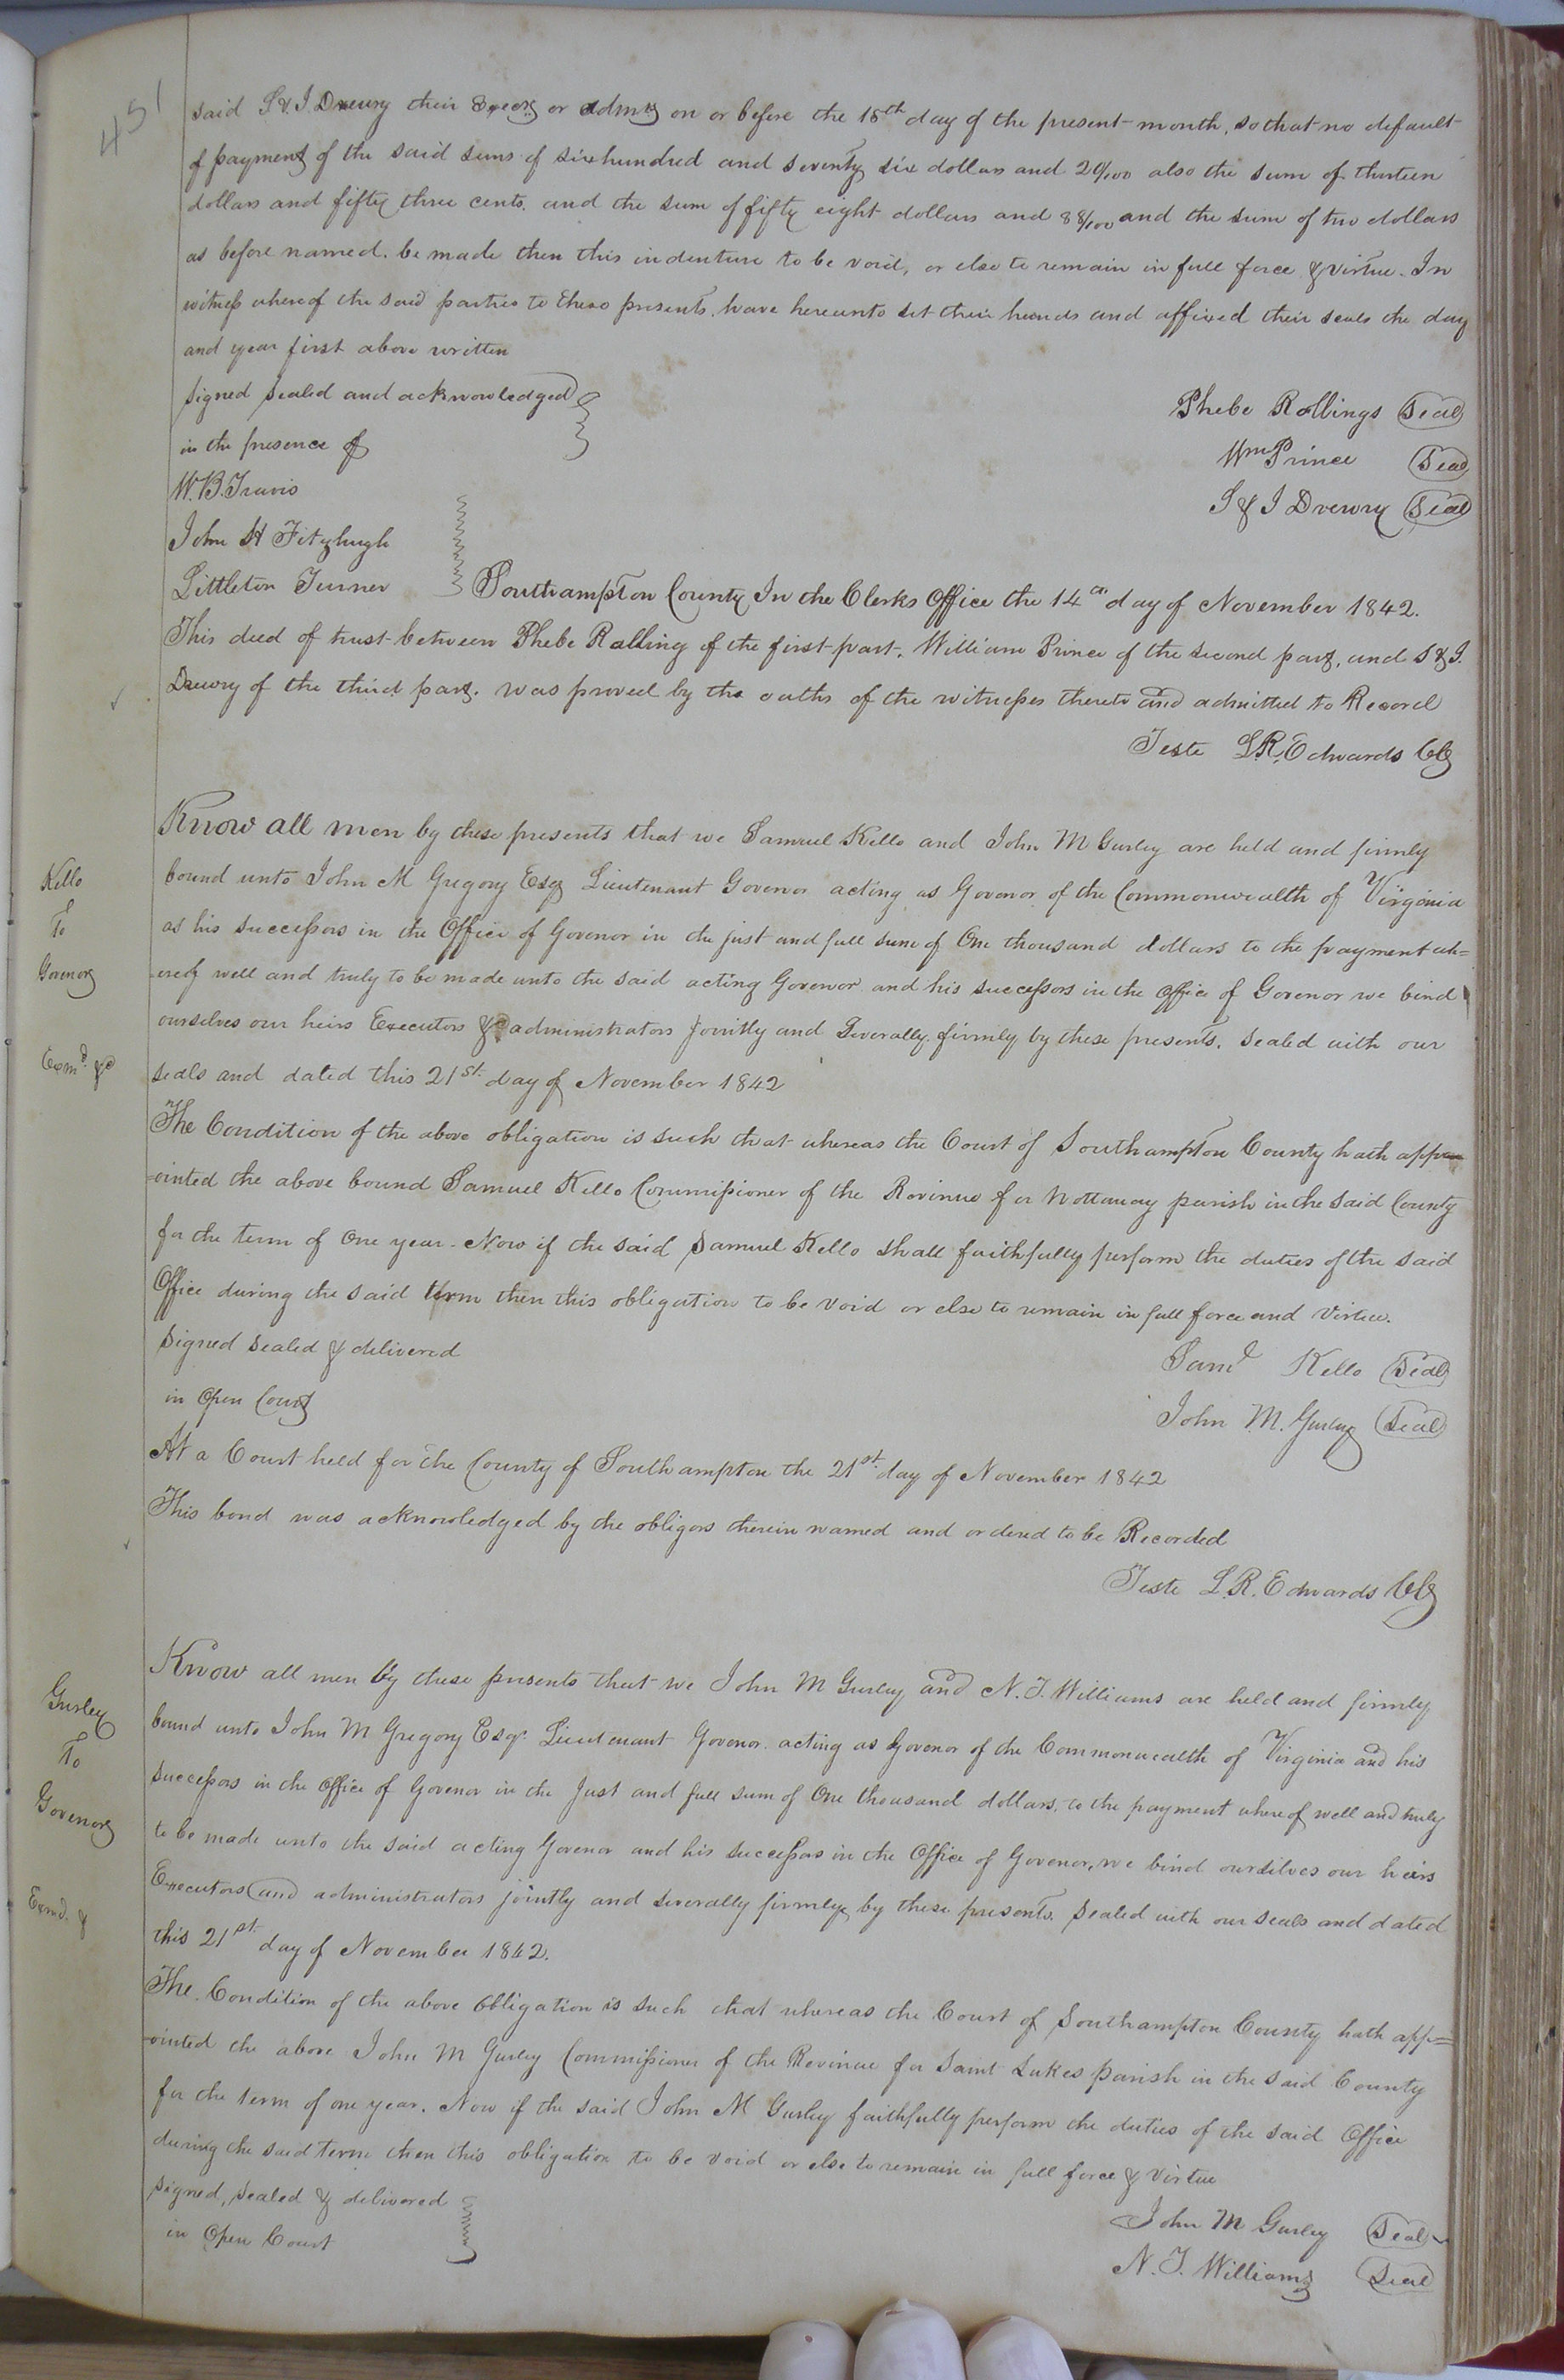 451
said S & J Drewry their Execrs or admrs on or before the 18th day of the present month, so that no default
of payment of the said sums of six hundred and seventy six dollars and 20/100 also the sum of thirteen
dollars and fifty three cents. and the sum of fifty eight dollars and 88/100 and the sum of two dollars
as before named. be made then this indenture to be void, or else to remain in full force & virtue. In
witness whereof the said parties to these presents. have hereunto set their hands and affixed their seals the day
and year first above written
Signed Sealed and acknowledged
in the presence of
Phebe Rollings Seal
Wm Prince Seal
S & J Drewry Seal
W. B. Travis
John H Fitzhugh
Littleton Turner
Southampton County In the Clerks Office the 14th day of November 1842.
This deed of trust between Phebe Ralling of the first part. William Prince of the second part, and S & J.
Drewry of the third part. was proved by the oaths of the witnesses thereto and admitted to Record
Teste L. R. Edwards CC
Kello
To
Govenor
Exmd. &c
Know all men by these presents that we Samuel Kello and John M Gurley are held and firmly
bound unto John M Gregory Esq Lieutenant Govenor acting as Govenor of the Commonwealth of Virginia
as his successors in the Office of Govenor in the just and full sum of One thousand dollars to the payment wh=
-ereof well and truly to be made unto the said acting Govenor and his successors in the Office of Govenor we bind
ourselves our heirs Executors & administrators Jointly and Severally firmly by these presents. Sealed with our
seals and dated this 21st day of November 1842
The Condition of the above obligation is such that whereas the Court of Southampton County hath app
-ointed the above bound Samuel Kello Commissioner of the Revinue for Nottaway parish in the said County
for the term of One year. Now if the said Samuel Kello shall faithfully perform the duties of the said
Office during the said term then this obligation to be void or else to remain in full force and virtue.
Signed Sealed & delivered
in Open Court
Saml Kello Seal
John M. Gurley Seal
At a Court held for the County of Southampton the 21st day of November 1842
This bond was acknowledged by the obligors therein named and ordered to be Recorded
Teste L. R. Edwards CC
Gurley
To
Govenor
Exmd. &
Know all men by these presents that we John M Gurley and N. T. Williams are held and firmly
bound unto John M Gregory Esqr. Lieutenant Govenor. acting as Govenor of the Commonwealth of Virginia and his
successors in the Office of Govenor in the Just and full sum of One thousand dollars, to the payment whereof well and truly
to be made unto the said acting Govenor and his successors in the Office of Govenor, we bind ourselves our heirs
Executors and administrators jointly and severally firmly by these presents. Sealed with our seals and dated
this 21st day of November 1842.
The Condition of the above obligation is such that whereas the Court of Southampton County hath app=
-ointed the above John M Gurley Commissioner of the Revinue for Saint Lukes parish in the said County
for the term of one year. Now if the said John M Gurley faithfully perform the duties of the said Office
during the said term then this obligation to be void or else to remain in full force & virtue
Signed, Sealed & delivered
in Open Court
John M Gurley Seal
N. T. Williams Seal